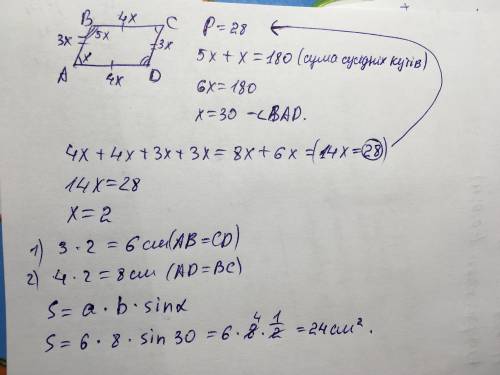 B 4x C
5x
3x 3x
x
A 4x D
P = 28
5x + x = 180 (сума сусідніх кутів)
6x = 180
x = 30 - ∠BAD.
4x + 4x + 3x + 3x = 8x + 6x = (14x = 28)
14x = 28
x = 2
1) 3 · 2 = 6 см (AB = CD)
2) 4 · 2 = 8 см (AD = BC)
S = a · b · sinα
S = 6 · 8 · sin 30 = 6 · 8 4 · 1/2 = 24 см².